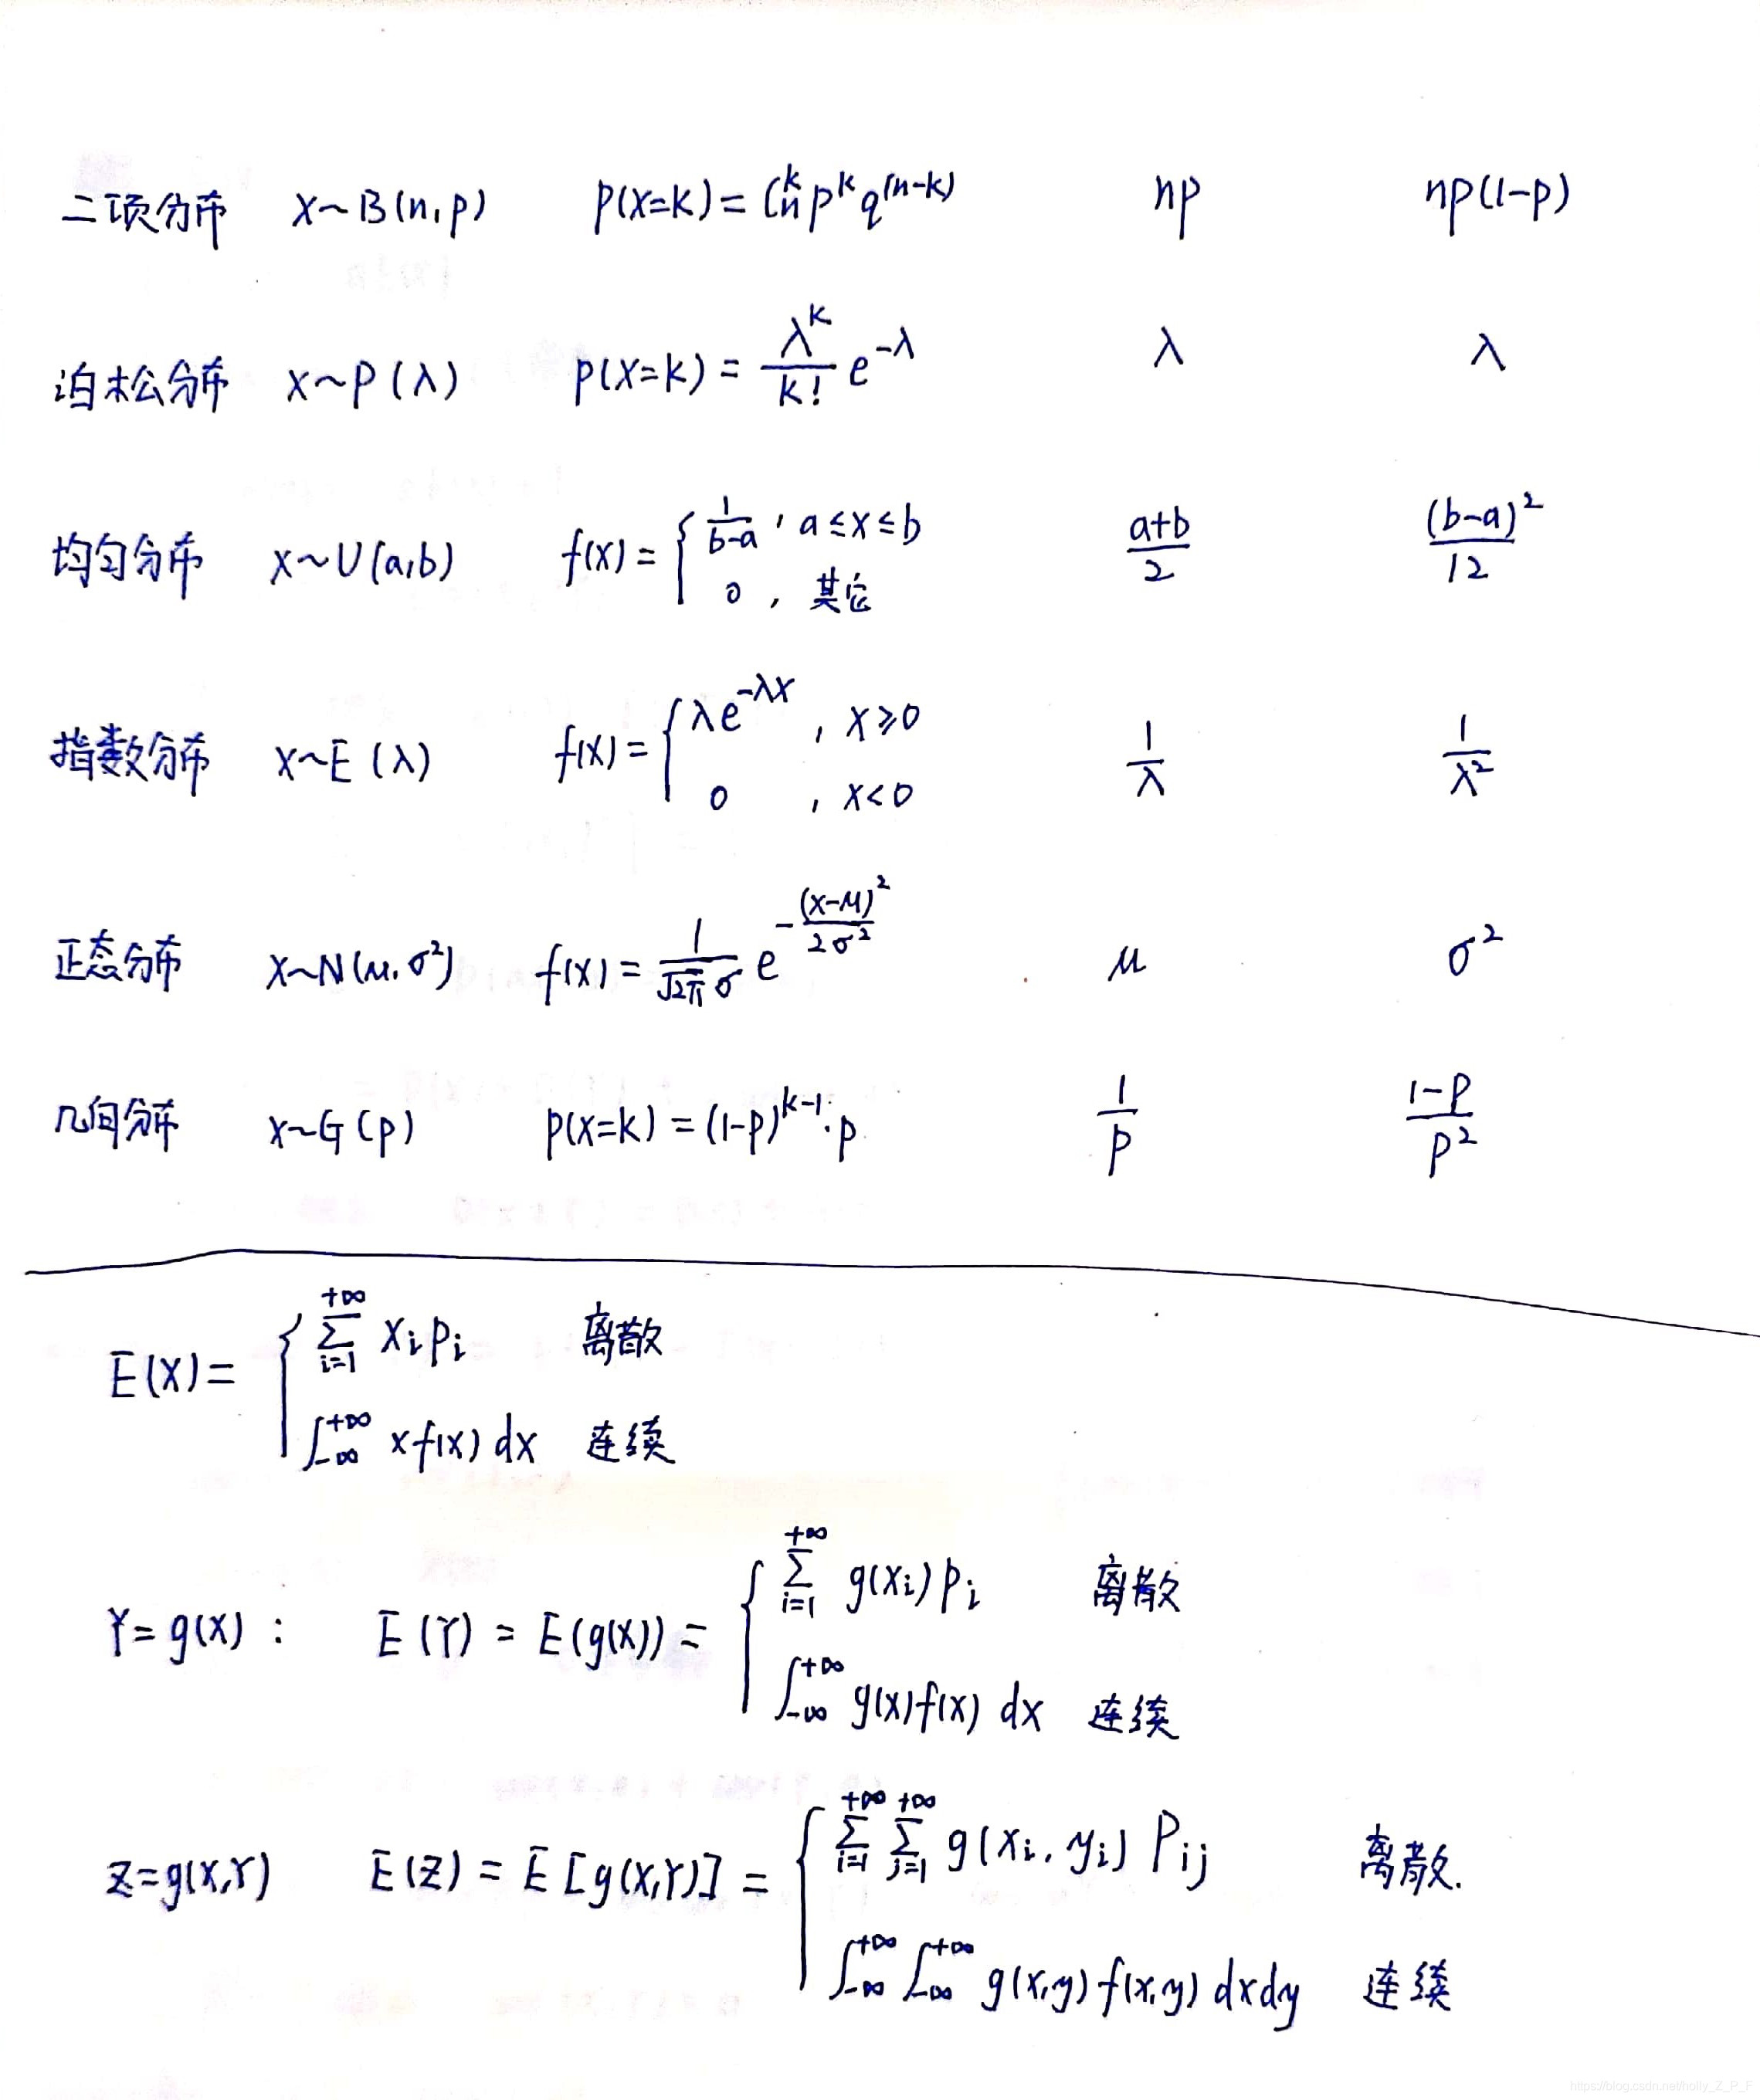 二项分布 X~B(n,p) P(X=k)=C_n^k p^k q^(n-k) np np(1-p)
泊松分布 X~P(λ) P(X=k)=λ^k/k! e^-λ λ λ
均匀分布 X~U(a,b) f(x)={ 1/(b-a), a≤x≤b (a+b)/2 (b-a)²/12
0, 其它
指数分布 X~E(λ) f(x)={ λe^-λx, x≥0 1/λ 1/λ²
0, x<0
正态分布 X~N(μ,σ²) f(x)=1/(√2π σ) e^-(x-μ)²/2σ² μ σ²
几何分布 X~G(p) P(X=k)=(1-p)^k-1·p 1/p (1-p)/p²
E(X)={ ∑_{i=1}^{+∞} x_i p_i 离散
∫_{-∞}^{+∞} xf(x)dx 连续
Y=g(X): E(Y)=E(g(X))={ ∑_{i=1}^{+∞} g(x_i)p_i 离散
∫_{-∞}^{+∞} g(x)f(x)dx 连续
Z=g(X,Y) E(Z)=E[g(X,Y)]={ ∑_{i=1}^{+∞} ∑_{j=1}^{+∞} g(x_i,y_i)P_ij 离散.
∫_{-∞}^{+∞} ∫_{-∞}^{+∞} g(x,y)f(x,y)dxdy 连续
https://blog.csdn.net/holly_Z_P_F